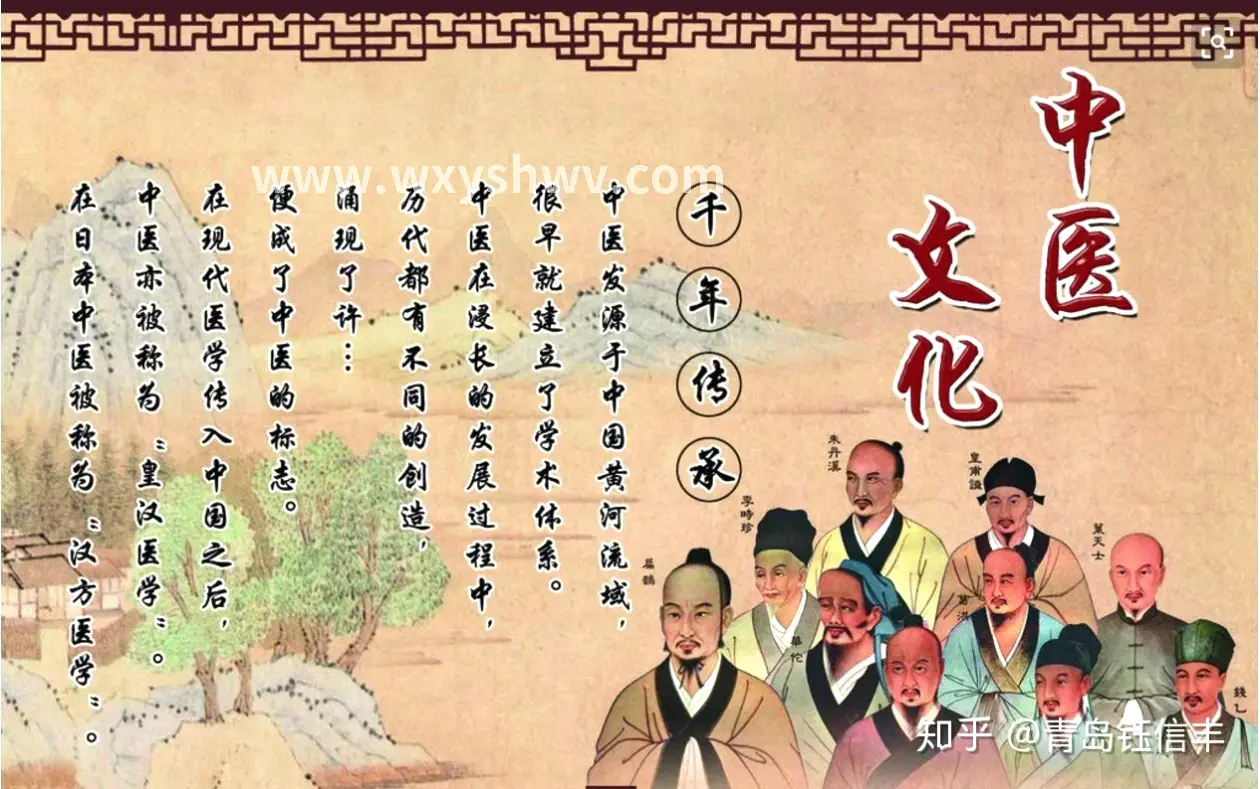 中医
文化
千年传承
中医发源于中国黄河流域，
很早就建立了学术体系。
中医在浸长的发展过程中，
历代都有不同的创造，
涌现了许…
便成了中医的标志。
在现代医学传入中国之后，
中医亦被称为“皇汉医学”。
在日本中医被称为“汉方医学”。
www.wxyshwv.com
朱丹溪
皇甫謐
李時珍
葉天士
扁鵲
葛洪
華佗
錢乙
知乎 @青岛钰信丰